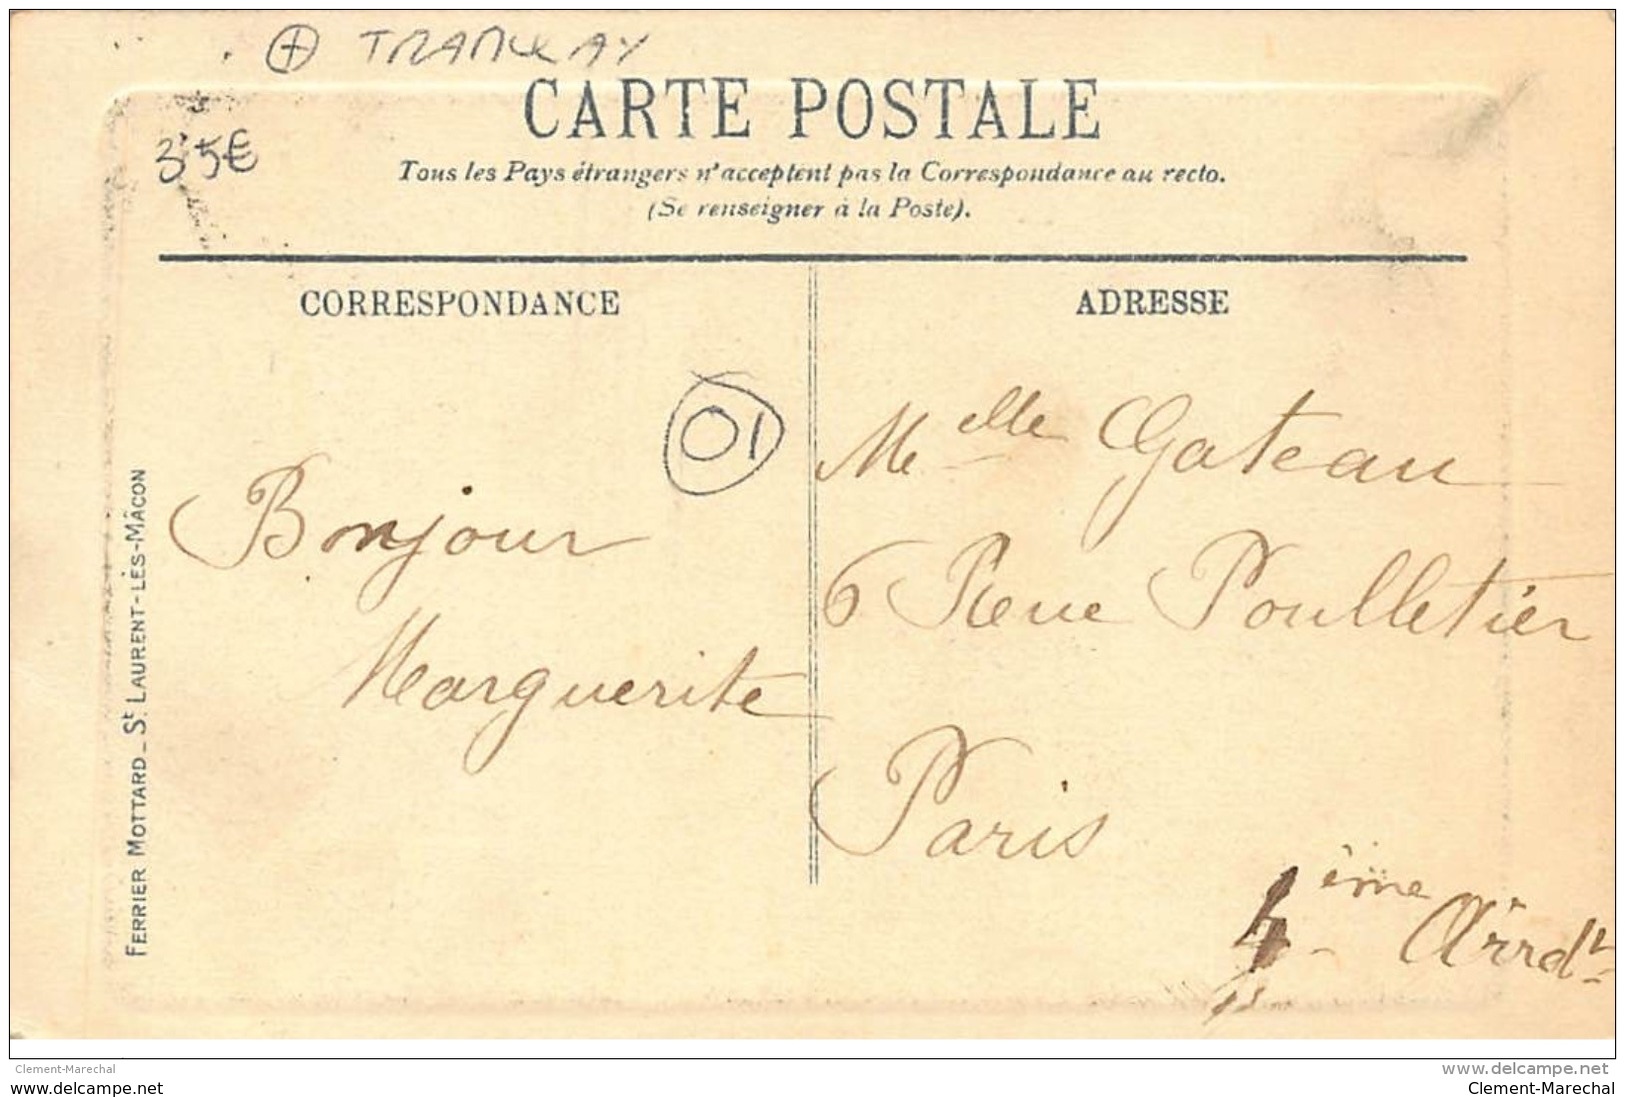 ⊕ TRAMWAY
35€
CARTE POSTALE
Tous les Pays étrangers n'acceptent pas la Correspondance au recto.
(Se renseigner à la Poste).
CORRESPONDANCE
01
Bonjour
Marguerite
FERRIER MOTTARD _ St LAURENT-LÈS-MÂCON
ADRESSE
Melle Gateau
6 Rue Poulletier
Paris
4ème Arrdt
Clement-Marechal
www.delcampe.net
www.delcampe.net
Clement-Marechal